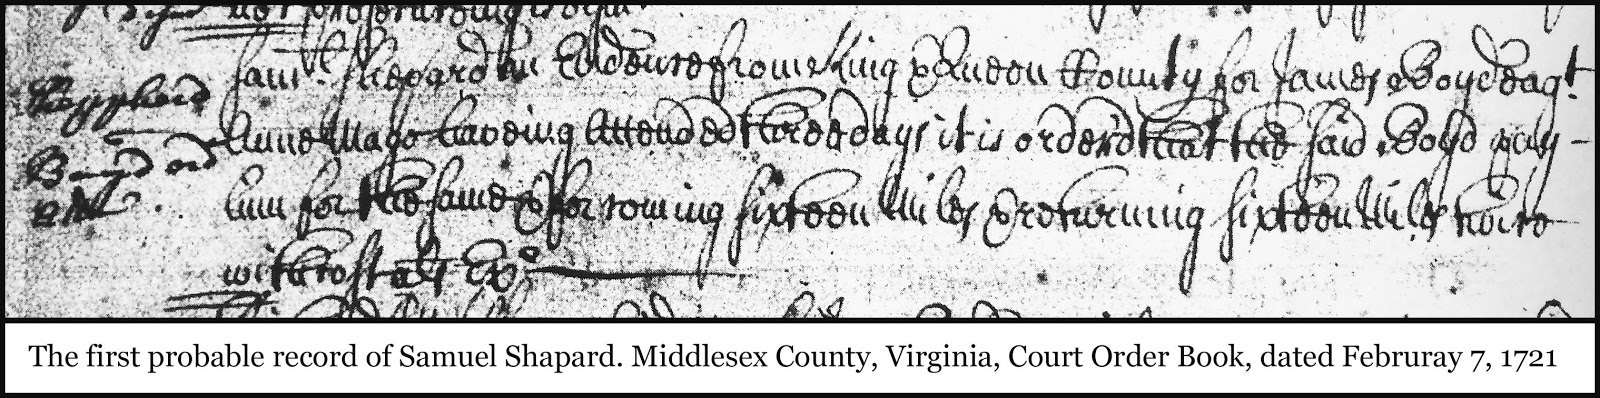 Saml. Shepard an Evidence from King & Queen County for James Boyd agt.
Anne Mayo haveing Attended three days it is orderd that the said Boyd pay
him for the same & for coming sixteen Miles & returning sixteen Miles twice
with costs als Exo.
Sheppherd
Boyd ord
The first probable record of Samuel Shapard. Middlesex County, Virginia, Court Order Book, dated Februray 7, 1721